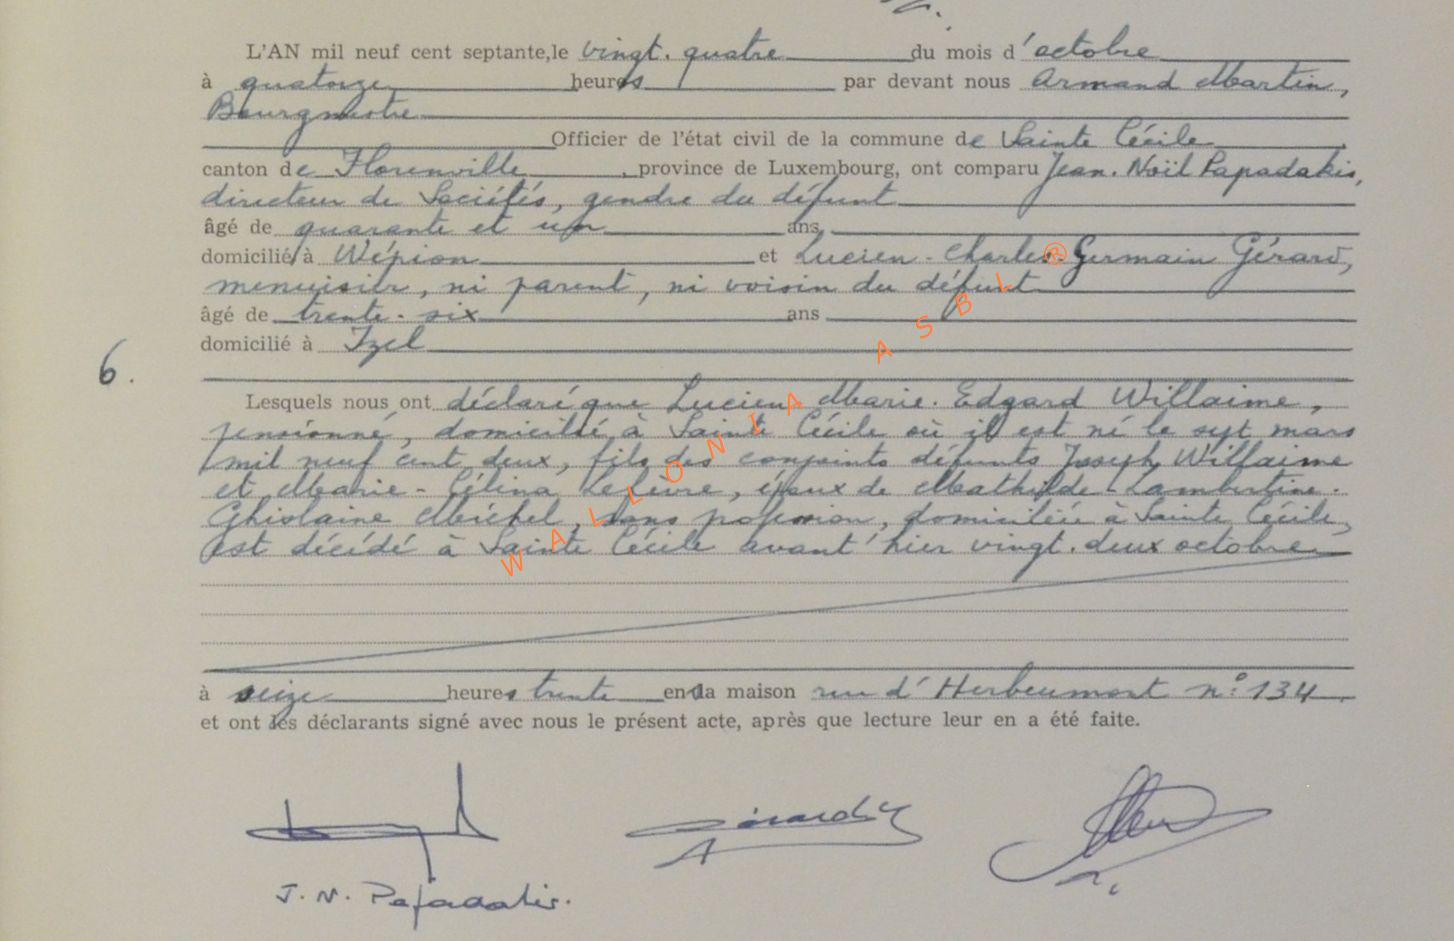 L'AN mil neuf cent septante, le vingt. quatre du mois d'octobre
à quatorze heures par devant nous Armand Martin,
Bourgmestre
Officier de l'état civil de la commune de Sainte Cécile
canton de Florenville, province de Luxembourg, ont comparu Jean. Noël Papadakis,
directeur de Sociétés, gendre du défunt
âgé de quarante et un ans,
domicilié à Wépion et Lucien - Charles - Germain Gérard,
menuisier, ni parent, ni voisin du défunt
âgé de trente - six ans
domicilié à Izel
6.
Lesquels nous ont déclaré que Lucien Marie. Edgard Willaime,
pensionné, domicilié à Sainte Cécile où il est né le sept mars
mil neuf cent deux, fils des conjoints défunts Joseph Willaime
et Marie - Célina Lefèvre, époux de Mathilde - Lambertine -
Ghislaine Michel, sans profession, domiciliée à Sainte Cécile,
est décédé à Sainte Cécile avant hier vingt. deux octobre
à seize heures trente en la maison rue d'Herbeumont n° 134
et ont les déclarants signé avec nous le présent acte, après que lecture leur en a été faite.
Gérard
J. N. Papadakis.
WALLONIA ASBL ®